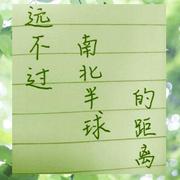 远不过
南北半球
的距离